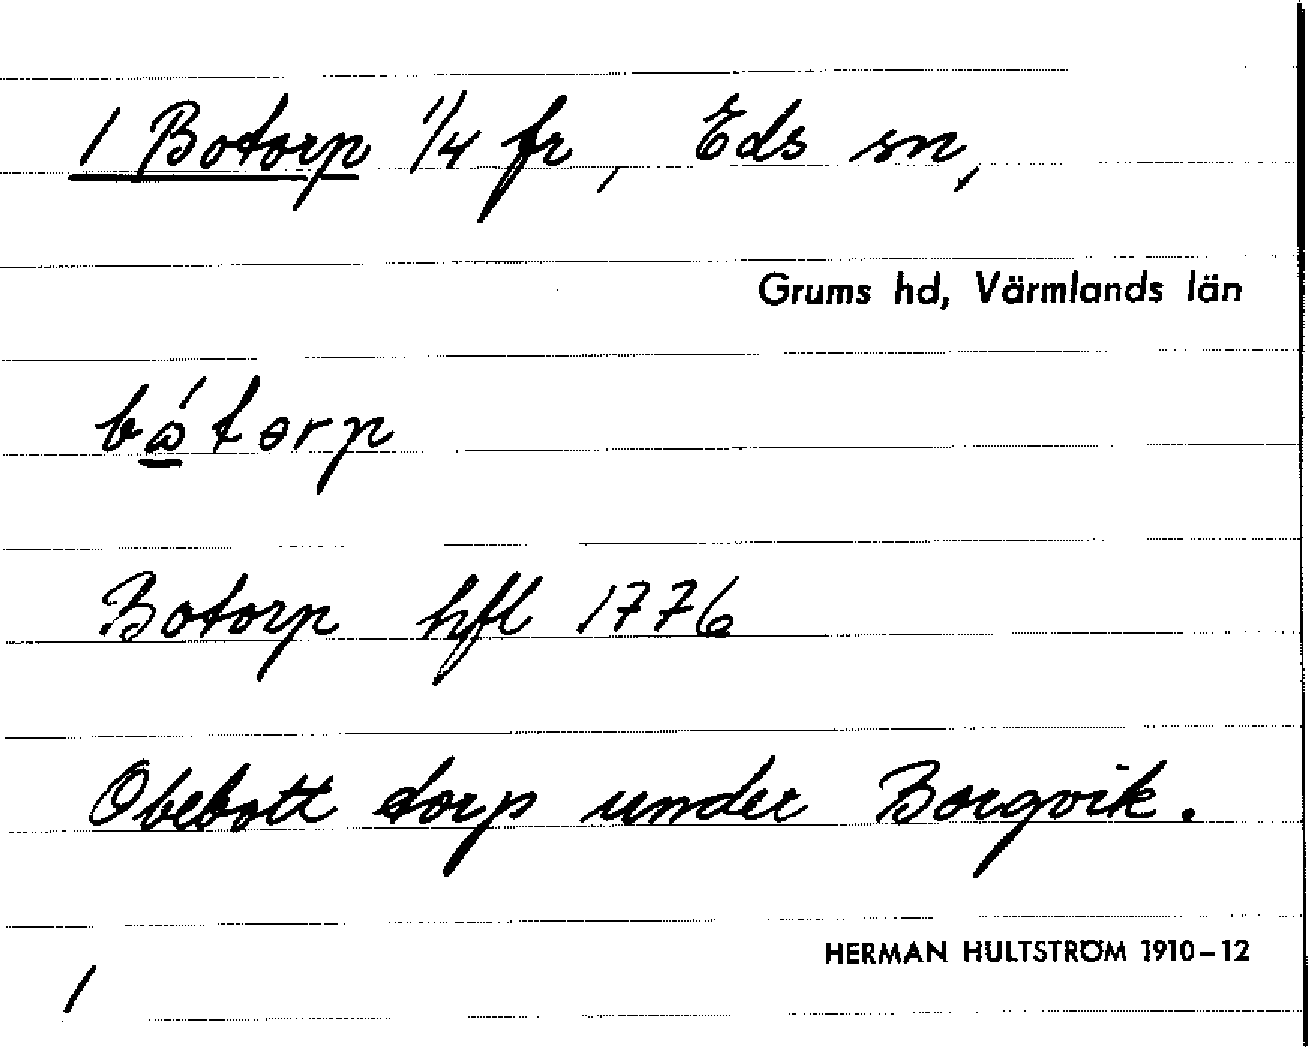 1 Botorp 1/4 fr, Eds sn,
Grums hd, Värmlands län
Botorp hfl 1776
Obebott torp under Borgvik.
HERMAN HULTSTRÖM 1910–12
1